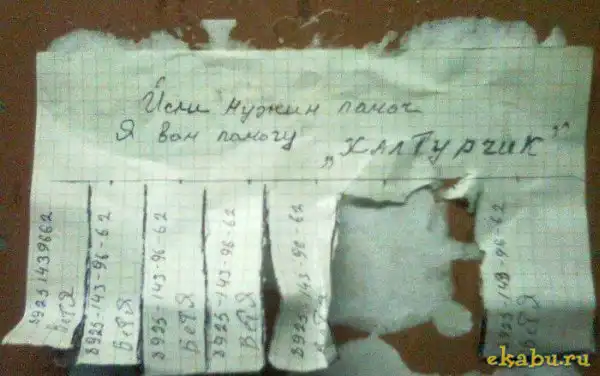 Исли нужин памоч
Я вам памогу
„ХАЛТУРЧИК"
89251439662
ВетЯ
8925-143-96-62
ВетЯ
8925-143-96-62
ВетЯ
8925-143-96-62
ВетЯ
8925-143-96-62
8925-143-96-62
ВетЯ
ekabu.ru